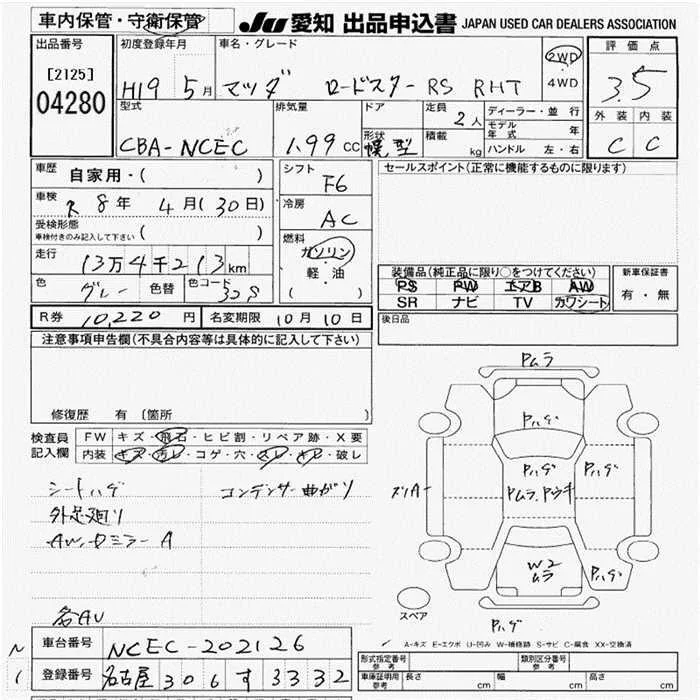 車内保管・守衛保管 JU 愛知 出品申込書 JAPAN USED CAR DEALERS ASSOCIATION
出品番号 初度登録年月 車名・グレード 2WD 評価点
[2125] H19 5月 マツダ ロードスター RS RHT 4WD 3.5
04280
型式 排気量 ドア 定員 2人 ディーラー・並行 外装 内装
CBA-NCEC 1.99cc 形状 幌型 積載 kg モデル年式 年 C C
ハンドル 左・右
車歴 自家用・( ) シフト F6 セールスポイント(正常に機能するものに限ります)
車検 R 8年 4月(30日) 冷房 AC
受検形態 車検付きのみ記入して下さい ( )
燃料 ガソリン
走行 13万4千213km 軽・油 ( ) 装備品(純正品に限り○をつけてください) 新車保証書
PS PW エアB AW 有・無
色 グレー 色替 色コード 32S SR ナビ TV カワシート
R券 10,220円 名変期限 10月10日 後日品
注意事項申告欄(不具合内容等は具体的に記入して下さい)
修復歴 有 [箇所 ]
検査員記入欄 FW キズ・飛石・ヒビ割・リペア跡・X要
内装 キズ・汚レ・コゲ・穴・スレ・キレ・破レ
シートハゲ コンデンサー曲がり
外足廻り
AW、ドミラー A
各AU
Pムラ
Pハゲ
Pハゲ Pハゲ
スリA Pムラ、Pウキ
W2 ムラ Pハゲ
Pハゲ
スペア
A-キズ E-エクボ U-凹み W-補修跡 S-サビ C-腐食 XX-交換済
車台番号 NCEC-202126 型式指定番号 参考 類別区分番号 参考
登録番号 名古屋 306 す 3332 車庫証明用 参考 長さ cm 幅 cm 高さ cm